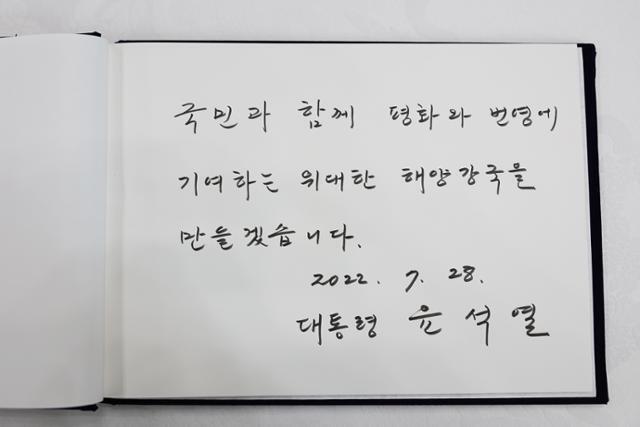 국민과 함께 평화와 번영에
기여하는 위대한 해양강국을
만들겠습니다.
2022. 7. 28.
대통령 윤석열